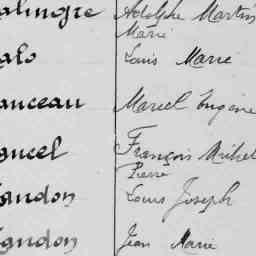 alingre Adolphe Martin
Marie
alo Louis Marie
anceau Marcel Eugène
ancel François Michel
Pierre
andon Louis Joseph
andon Jean Marie